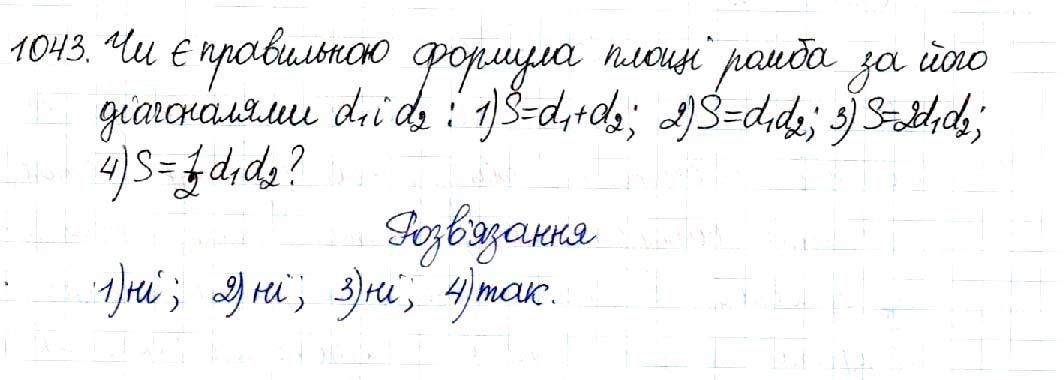 1043. Чи є правильною формула площі ромба за його
діагоналями d₁ і d₂ : 1) S=d₁+d₂; 2) S=d₁d₂; 3) S=2d₁d₂;
4) S=½ d₁d₂?
Розв'язання
1) ні; 2) ні; 3) ні; 4) так.